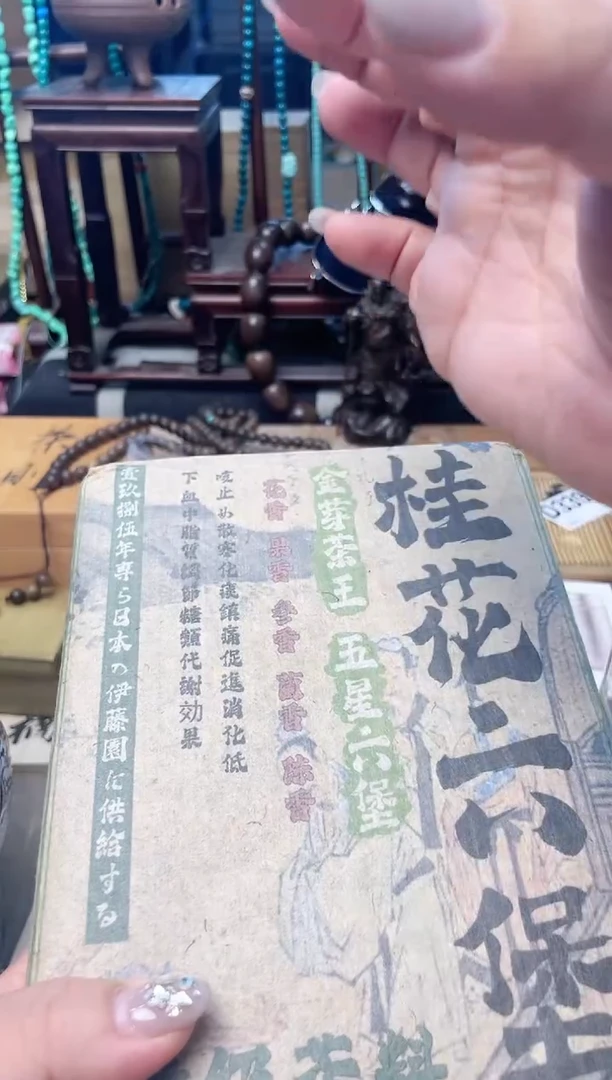 桂花六保
金芽茶王 五星六堡
花香 果香 參香 菌香 陈香
咳止め散寒化痰鎮痛促進消化低
下血中脂質調節糖類代謝効果
壹玖捌伍年専ら日本の伊藤園に供給する